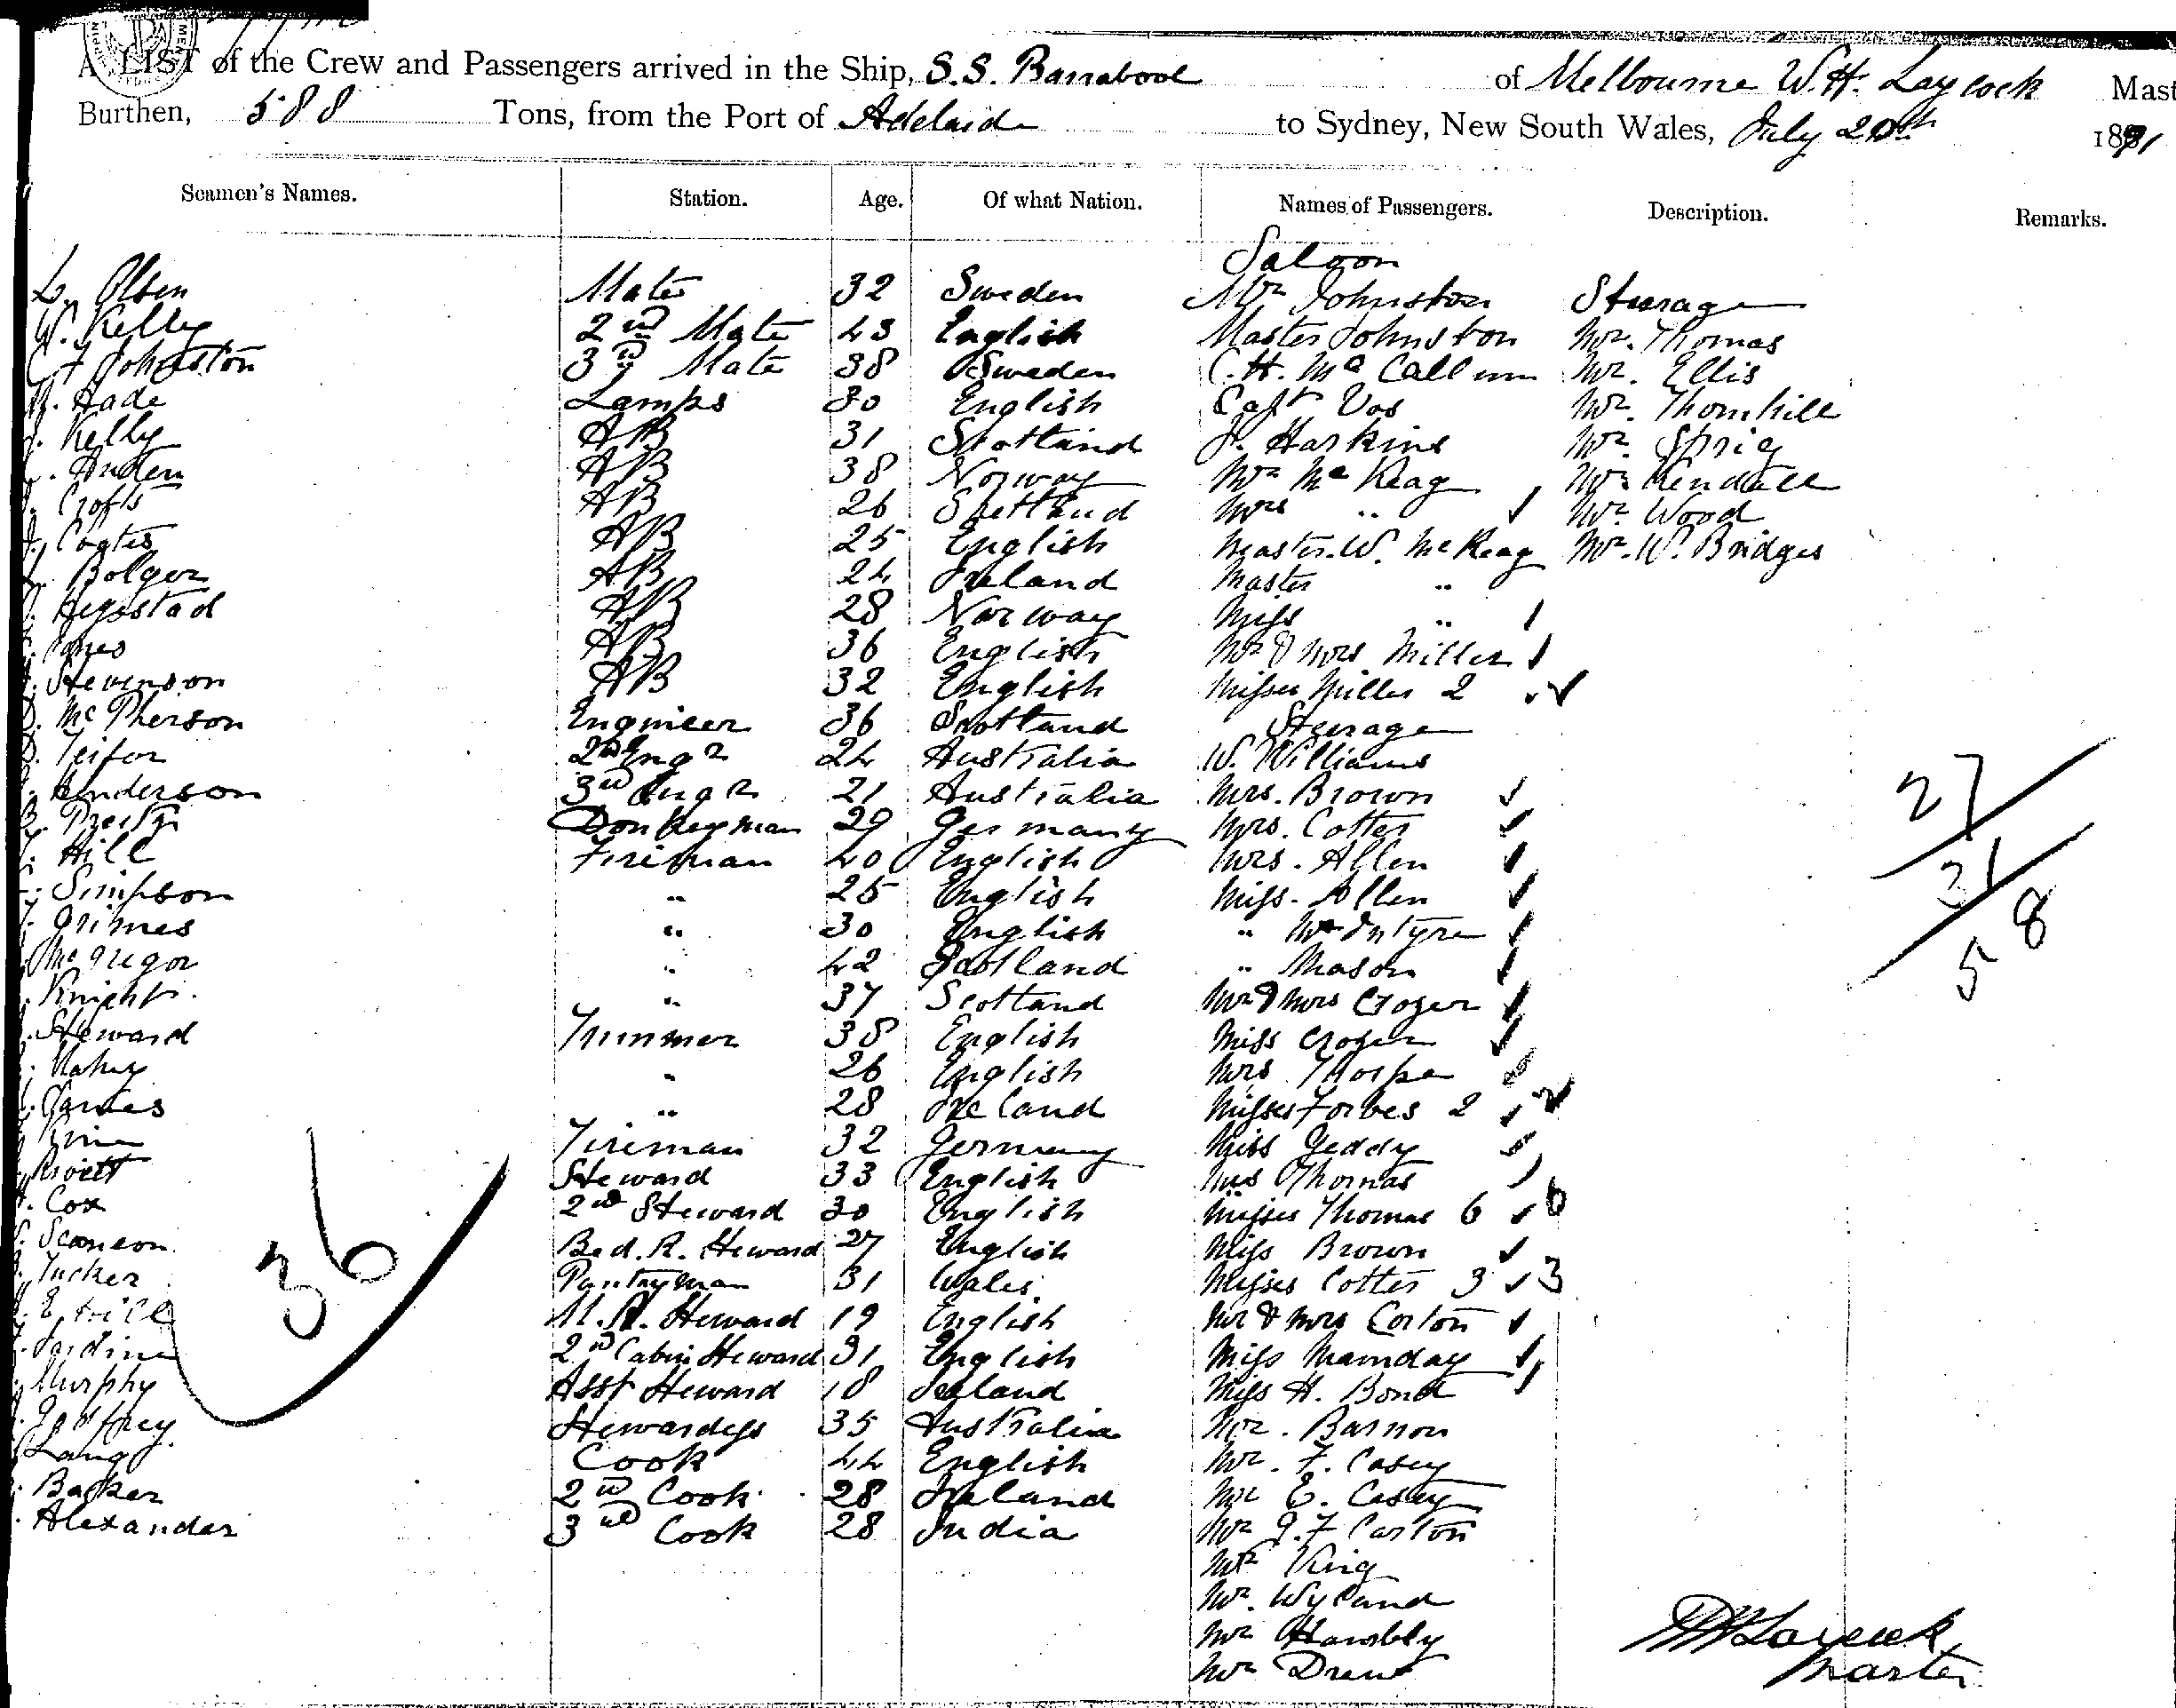 A LIST of the Crew and Passengers arrived in the Ship, S.S. Barrabool of Melbourne W.H. Laycock Mast
Burthen, 588 Tons, from the Port of Adelaide to Sydney, New South Wales, July 20th 1891
Seamen's Names. Station. Age. Of what Nation. Names of Passengers. Description. Remarks.
Saloon
L. Olsen Mate 32 Sweden Mr Johnston Steerage
W. Kelly 2nd Mate 43 English Master Johnston Mr. Thomas
Johnston 3rd Mate 38 Sweden C.H. McCallum Mr. Ellis
Hade Lamps 30 English Capt Vos Mr. Thornhill
Kelly AB 31 Scotland J. Harkins Mr. Sprig
AB 38 Norway Mr McKeag Mr Kendall
Crofts AB 26 Shetland Mrs " Mr. Wood
Coates AB 25 English Master W. McKeag Mr. W. Bridges
Bolger AB 24 Ireland Master "
Hegstad AB 28 Norway Miss "
Jones AB 36 English Mr & Mrs Miller
Stevenson AB 32 English Misses Miller 2
McPherson Engineer 36 Scotland Steerage
2nd Engr 24 Australia W. Williams
Anderson 3rd Engr 21 Australia Mrs. Brown
Donkeyman 29 Germany Mrs. Cotter
Hill Fireman 40 English Mrs. Allen
Simpson " 25 English Miss. Allen
Grimes " 30 English " McIntyre
McGregor " 42 Scotland " Mason
Knight " 37 Scotland Mr & Mrs Crozer
Steward Trimmer 38 English Miss Crozer
" 26 English Mrs Thorpe
James " 28 Ireland Misses Forbes 2
Fireman 32 Germany Miss Geddy
Steward 33 English Mrs Thomas
Cox 2nd Steward 30 English Misses Thomas 6 6
Bed. R. Steward 27 English Miss Brown
Tucker Pantryman 31 Wales Misses Cotter 3 3
M.R. Steward 19 English Mr & Mrs Corlon
Jardine 2nd Cabin Steward 31 English Miss
Murphy Asst Steward 18 Ireland Miss H. Bond
Godfrey Stewardess 35 Australia Mr. Barnon
Lang Cook 44 English Mr. F. Casey
Barker 2nd Cook 28 Ireland Mr E. Casey
Alexander 3rd Cook 28 India Mr J.F Carlon
Mr King
Mr. Wyland
Mr Hambly
Mr Drew
27
31
58
36
WH Laycock
Master